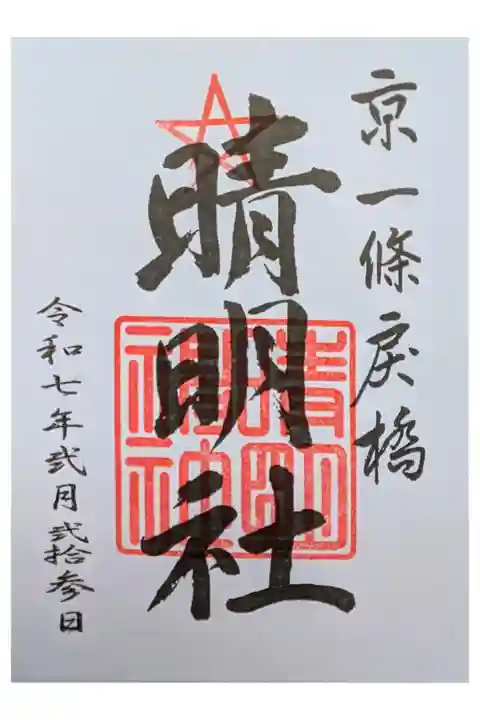 京一條戻橋
晴明社
晴明
神社
令和七年弐月弐拾参日